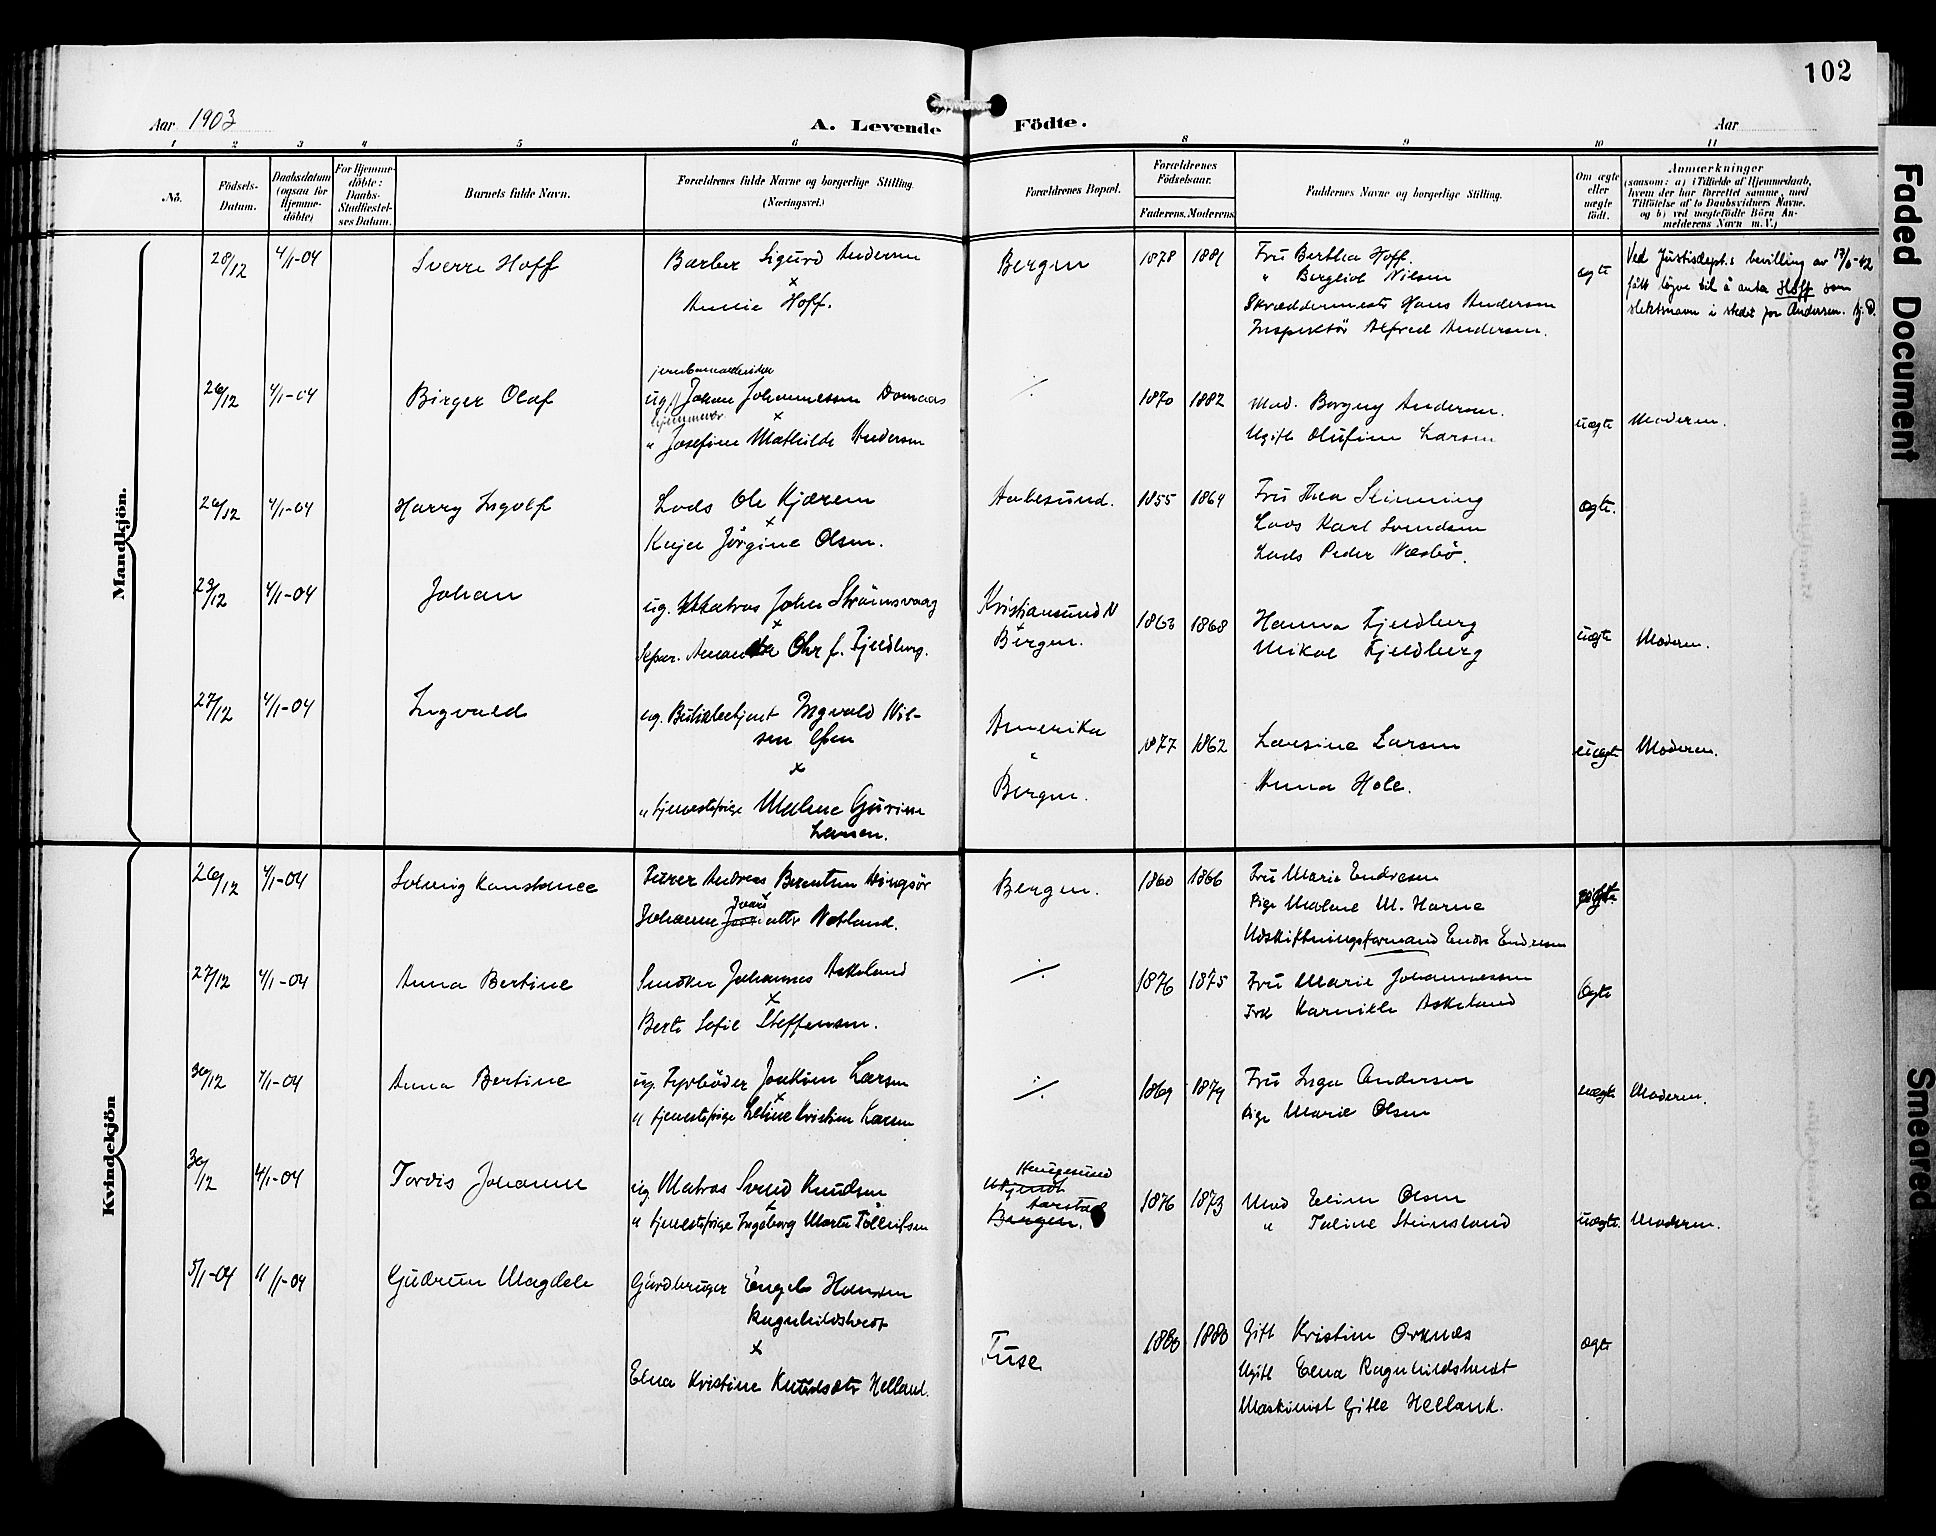 102
Aar 1903
A. Levende Födte.
Aar
1 2 3 4 5 6 8 9 10 11
No.
Födsels-Datum.
Daabsdatum (ogsaa for Hjemme-döbte)
For Hjemme-döbte: Daabs-Stadfæstel-ses Datum.
Barnets fulde Navn.
Forældrenes fulde Navne og borgerlige Stilling. (Næringsvei.)
Forældrenes Bopæl.
Forældrenes Födselsaar.
Faderens. Moderens
Faddernes Navne og borgerlige Stilling.
Om ægte eller uægte födt.
Anmærkninger
(saasom: a) i Tilfælde af Hjemmedaab,
hvem der har forrettet samme, med
Tilföielse af to Daabsvidners Navne.
og b) ved uægtefödte Börn An-
melderens Navn m. V.)
Mandkjön.
28/12 4/1-04 Sverre Hoff
Barber Sigurd Andersen
x
Amelie Hoff.
Bergen 1878 1881
Fru Bertha Hoff.
" Bergliot Nilsen
Skræddermestr Hans Andersen
Inspektör Alfred Andersen.
ægte
Ved Justisdept.s bevilling av 17/6-42
fått löyve til å anta Hoff som
slektsnavn i stedet for Andersen.
26/12 4/1-04 Birger Olaf
jernbanearbeider
ug. Johan Johannessen Domaas
hjemmev. x
" Josefine Mathilde Andersen
./. 1870 1882
Mad. Borgny Andersen.
Ugift Olufine Larsen
uægte Moderen.
26/12 4/1-04 Harry Ingolf
Lods Ole Kjærem
x
Jörgine Olsen.
1855 1864
Fru Thea Stinning
Lods Karl Svendsen
Lods Peder Næsbö.
ægte.
29/12 4/1-04 Johan
ug. Matros John Strömsvaag
x
Separ. Amanda Chr f. Fjeldberg.
Kristiansund N
x
Bergen.
1863 1868
Hanna Fjeldberg
Mikal Fjeldberg
uægte Moderen.
27/12 4/1-04 Ingvald
ug. Butikbetjent Ingvald Nil-
sen
x
" tjenestepige Malene Gurine
Larsen.
Amerika
"
Bergen.
1877 1862
Lavsine Larsen
Anna Hole.
uægte Moderen.
Kvindekjön
26/12 4/1-04 Solveig Konstance
Andreas Berentsen Hingsör
x
Johanne Ivars datter Netland.
Bergen. 1860 1866
Fru Marie Endresen
Pige Malene M. Harne
Udskiftningsformand Endre Endresen
ægte
27/12 4/1-04 Anna Bertine
Snedker Johannes Askeland
x
Berte Sofie Steffensen.
./. 1876 1875
Fru Marie Johannessen
Frk Kornikke Askeland
Ægte
30/12 4/1-04 Anna Bertine
ug. Fyrböder Joakim Larsen
x
" tjenestepige Letine Kristine Larsen
./. 1869 1879
Fru Inga Andersen
Pige Marie Olsen
uægte Moderen.
30/12 4/1-04 Tordis Johanne
ug. Matros Svend Knudsen
x
" tjenestepige Ingeborg Marta Tollefsen
Haugesund
Ukjendt
Aarstad
Bergen.
1876 1873
Mad Eline Olsen
" Taline Steinsland
uægte. Moderen.
5/1-04 11/1-04 Gudrun Magdele
Gårdbruger Engel Hansen
Ragnhildstvedt
x
Elna Kristine Knudsdtr Helland.
Fuse 1880 1880
Gift Kristine Orknæs
Ugift Elna Ragnhildstvedt
Maskinist Gitle Helland.
ægte
Faded Document
Smeared